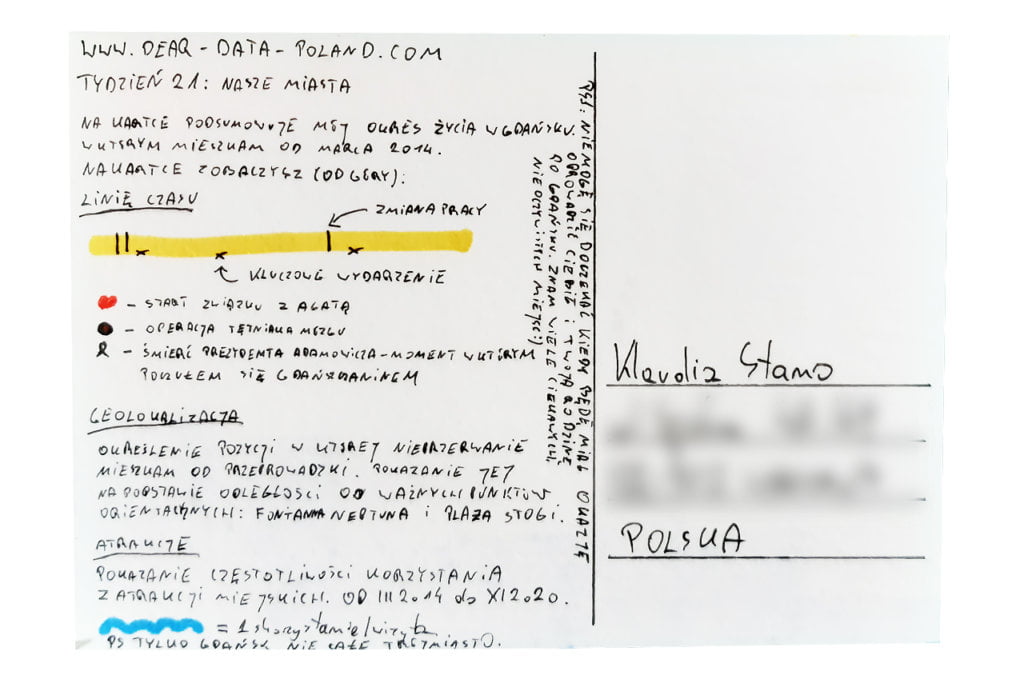 WWW.DEAQ-DATA-POLAND.COM
TYDZIEŃ 21: NASZE MIASTA
NA KARTCE PODSUMOWUJĘ MÓJ OKRES ŻYCIA W GDAŃSKU.
W KTÓRYM MIESZKAM OD MARCA 2014.
NA KARTCE ZOBACZYSZ (OD GÓRY):
LINIĘ CZASU
ZMIANA PRACY
KLUCZOWE WYDARZENIE
- START ZWIĄZKU Z AGATĄ
- OPERACJA TĘTNIAKA MÓZGU
- ŚMIERĆ PREZYDENTA ADAMOWICZA - MOMENT W KTÓRYM
POCZUŁEM SIĘ GDAŃSZCZANINEM
GEOLOKALIZACJA
OKREŚLENIE POZYCJI W KTÓREJ NIEPRZERWANIE
MIESZKAM OD PRZEPROWADZKI. POKAZANIE JEJ
NA PODSTAWIE ODLEGŁOŚCI OD WAŻNYCH PUNKTÓW
ORIENTACYJNYCH: FONTANNA NEPTUNA I PLAŻA STOGI.
ATRAKCJE
POKAZANIE CZĘSTOTLIWOŚCI KORZYSTANIA
Z ATRAKCJI MIEJSKICH. OD III 2014 do XI 2020.
= 1 skorzystanie/wizyta
PS TYLKO GDAŃSK NIE CAŁE TRÓJMIASTO.
PS1: NIE MOGĘ SIĘ DOCZEKAĆ KIEDY BĘDĘ MIAŁ OKAZJĘ
OPROWADZIĆ CIEBIE I TWOJĄ RODZINĘ
PO GDAŃSKU. ZNAM WIELE CIEKAWYCH,
NIEOCZYWISTYCH MIEJSC :)
Klaudia Stano
POLSKA